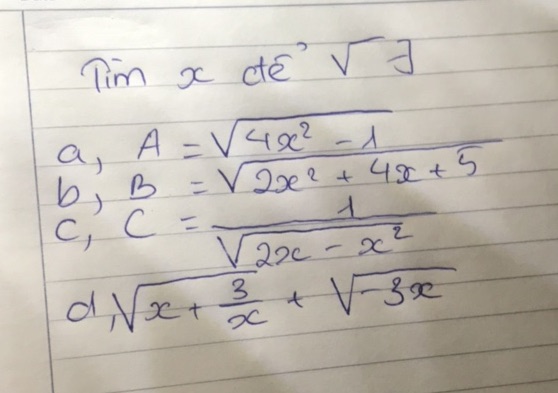 Tìm x để √ ∃
a, A = √(4x² - 1)
b, B = √(2x² + 4x + 5)
c, C = 1/√(2x - x²)
d, √(x + 3/x) + √(-3x)